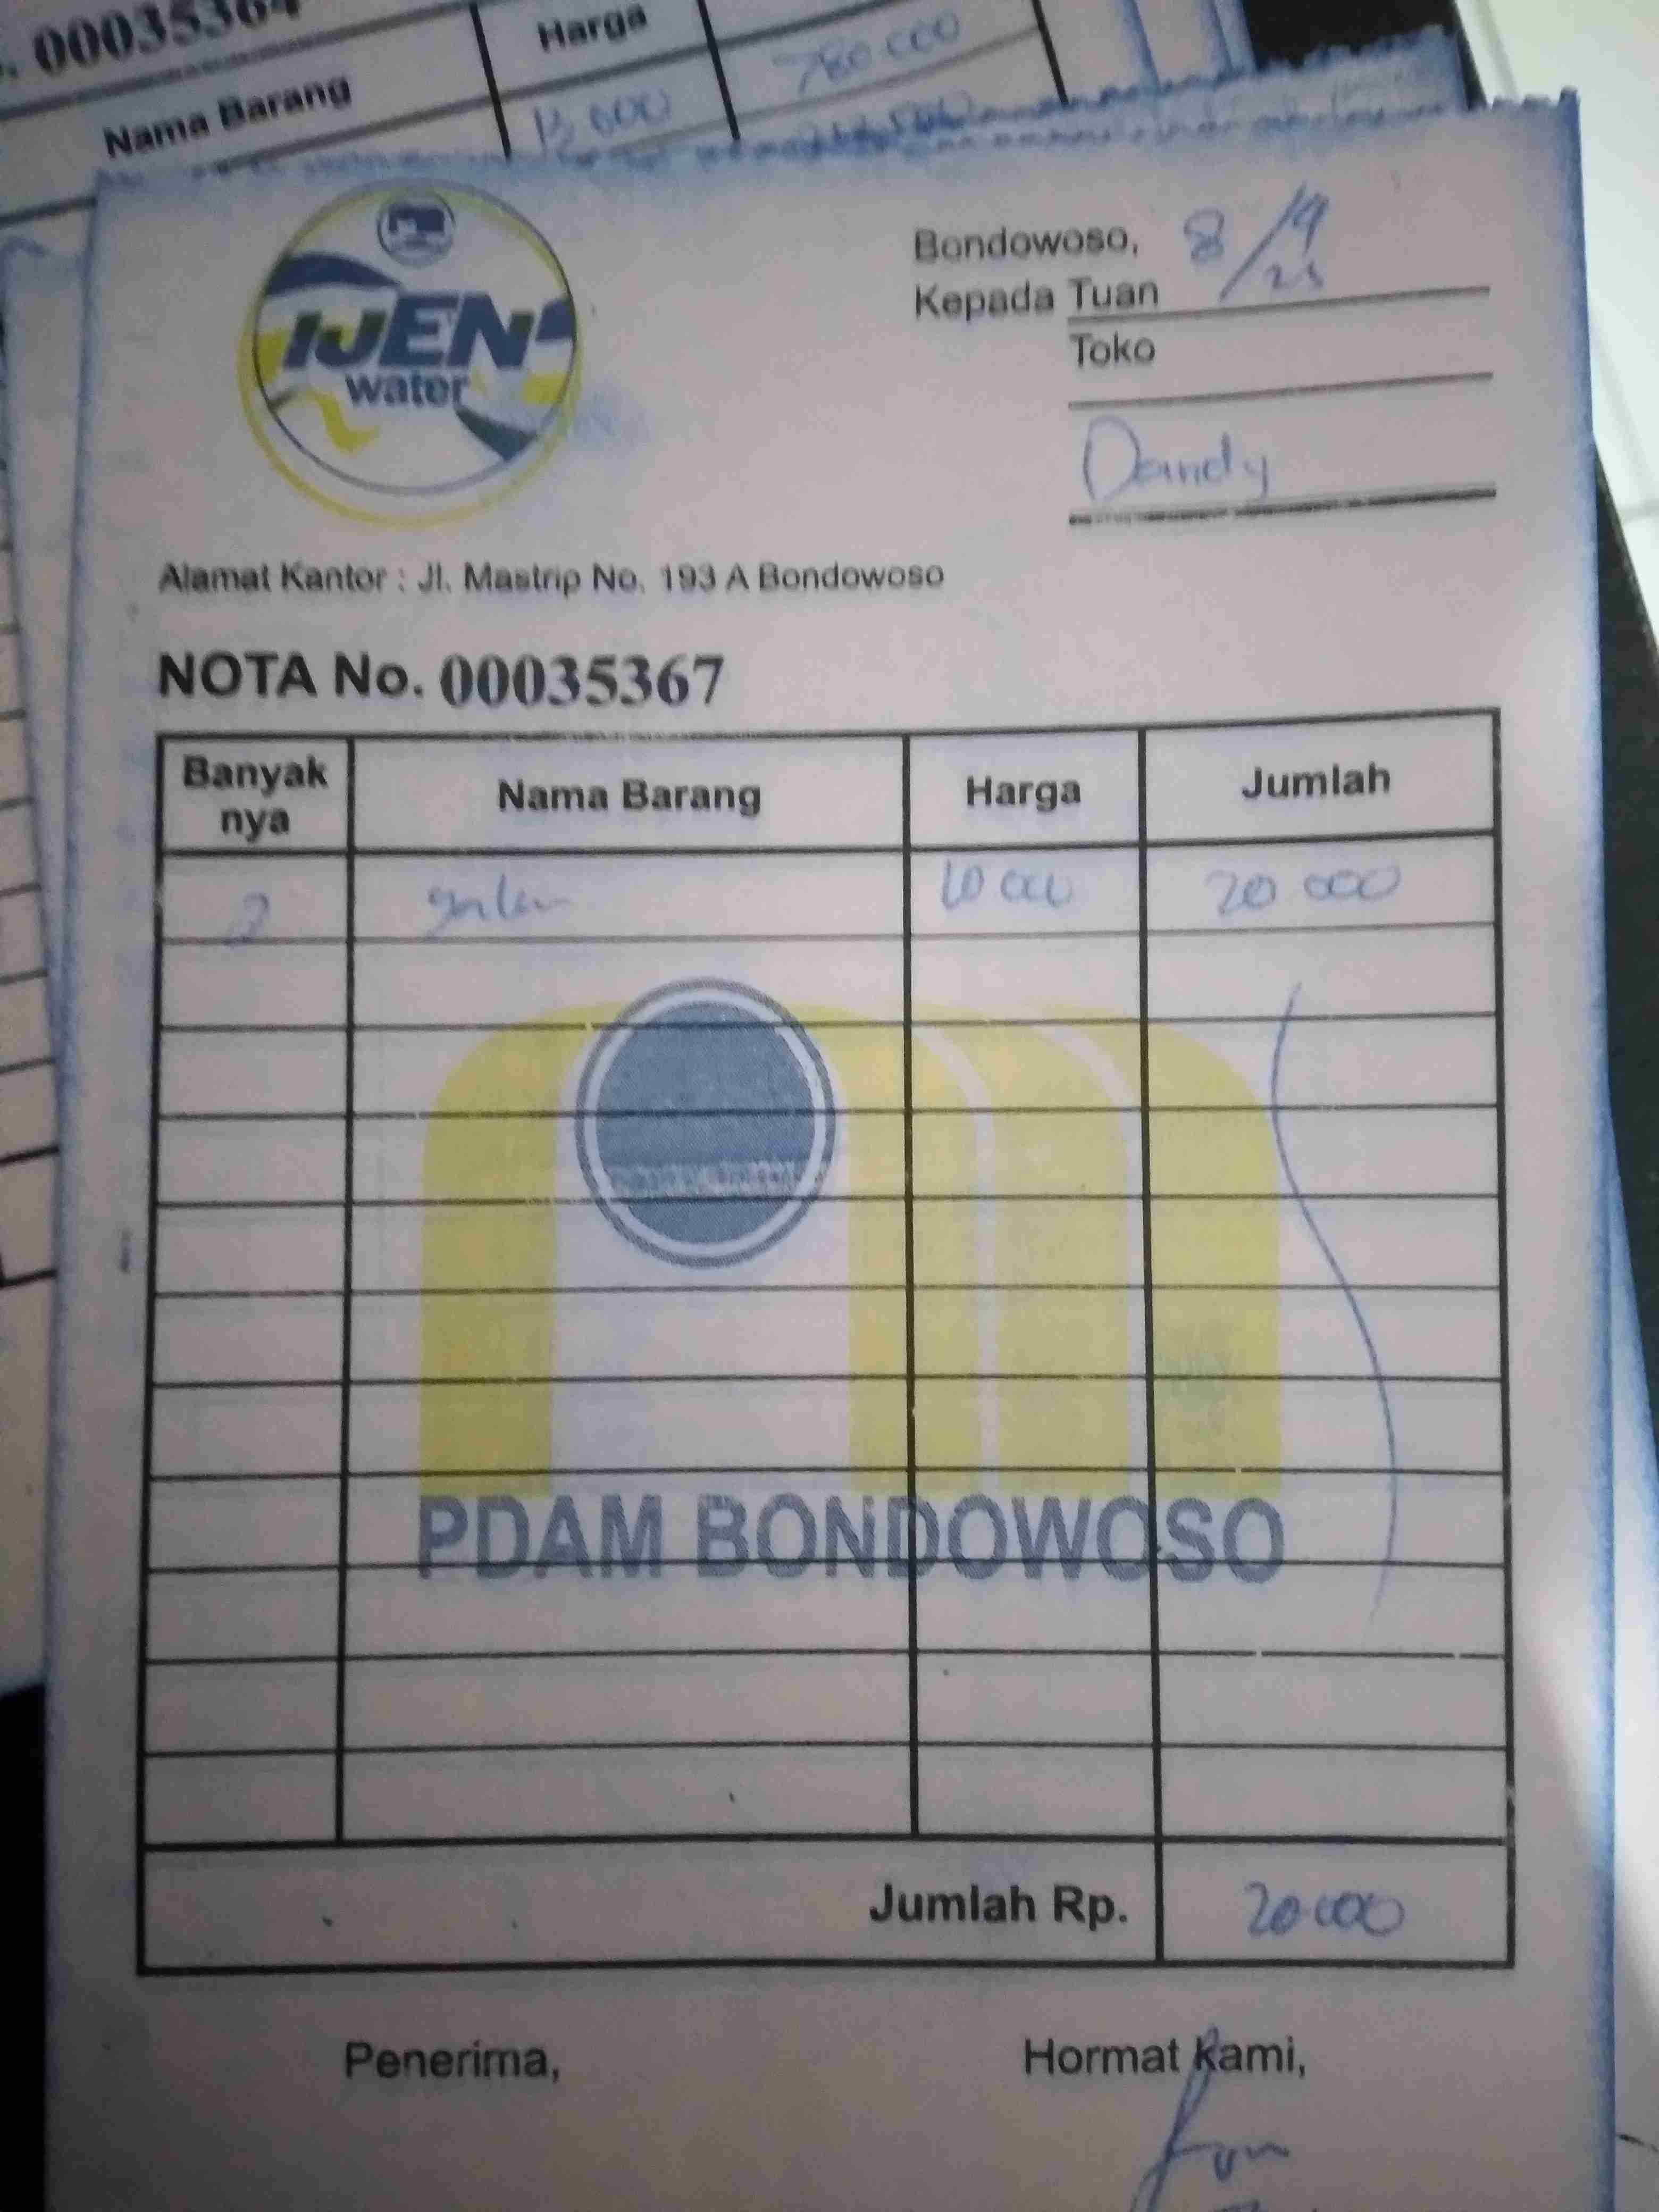 00035364
Nama Barang Harga
13.000 780.000
IJEN
water
Bondowoso, 8/9/23
Kepada Tuan
Toko
Dandy
Alamat Kantor : Jl. Mastrip No. 193 A Bondowoso
NOTA No. 00035367
Banyak nya Nama Barang Harga Jumlah
2 galon 10 000 20 000
PDAM BONDOWOSO
Jumlah Rp. 20.000
Penerima, Hormat Kami,